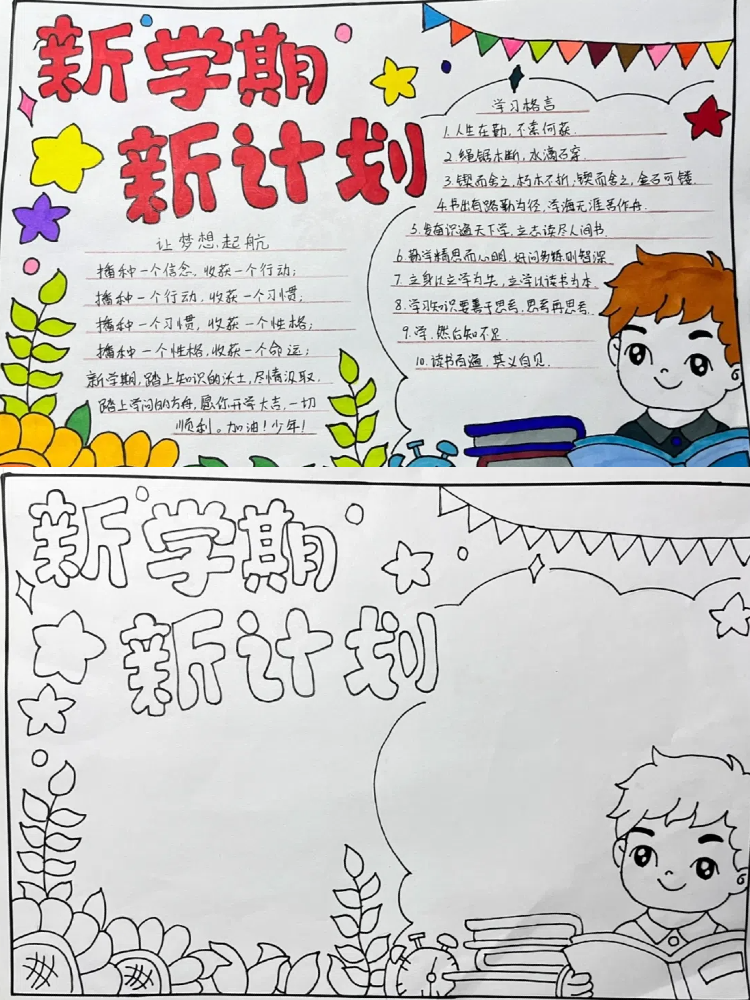 新学期
新计划
让梦想起航
播种一个信念，收获一个行动；
播种一个行动，收获一个习惯；
播种一个习惯，收获一个性格；
播种一个性格，收获一个命运；
新学期，踏上知识的沃土，尽情汲取，
踏上学问的方舟，愿你开学大吉，一切
顺利。加油！少年！
学习格言
1. 人生在勤，不索何获．
2. 绳锯木断，水滴石穿．
3. 锲而舍之，朽木不折，锲而舍之，金石可镂．
4. 书山有路勤为径，学海无涯苦作舟．
5. 发奋识遍天下字，立志读尽人间书．
6. 勤学精思而心明，好问
7. 立身以立学为先，立学以读书为本．
8. 学习知识要善于思考，思考再思考．
9. 学，然后知不足．
10. 读书百遍，其义自见．
新学期
新计划